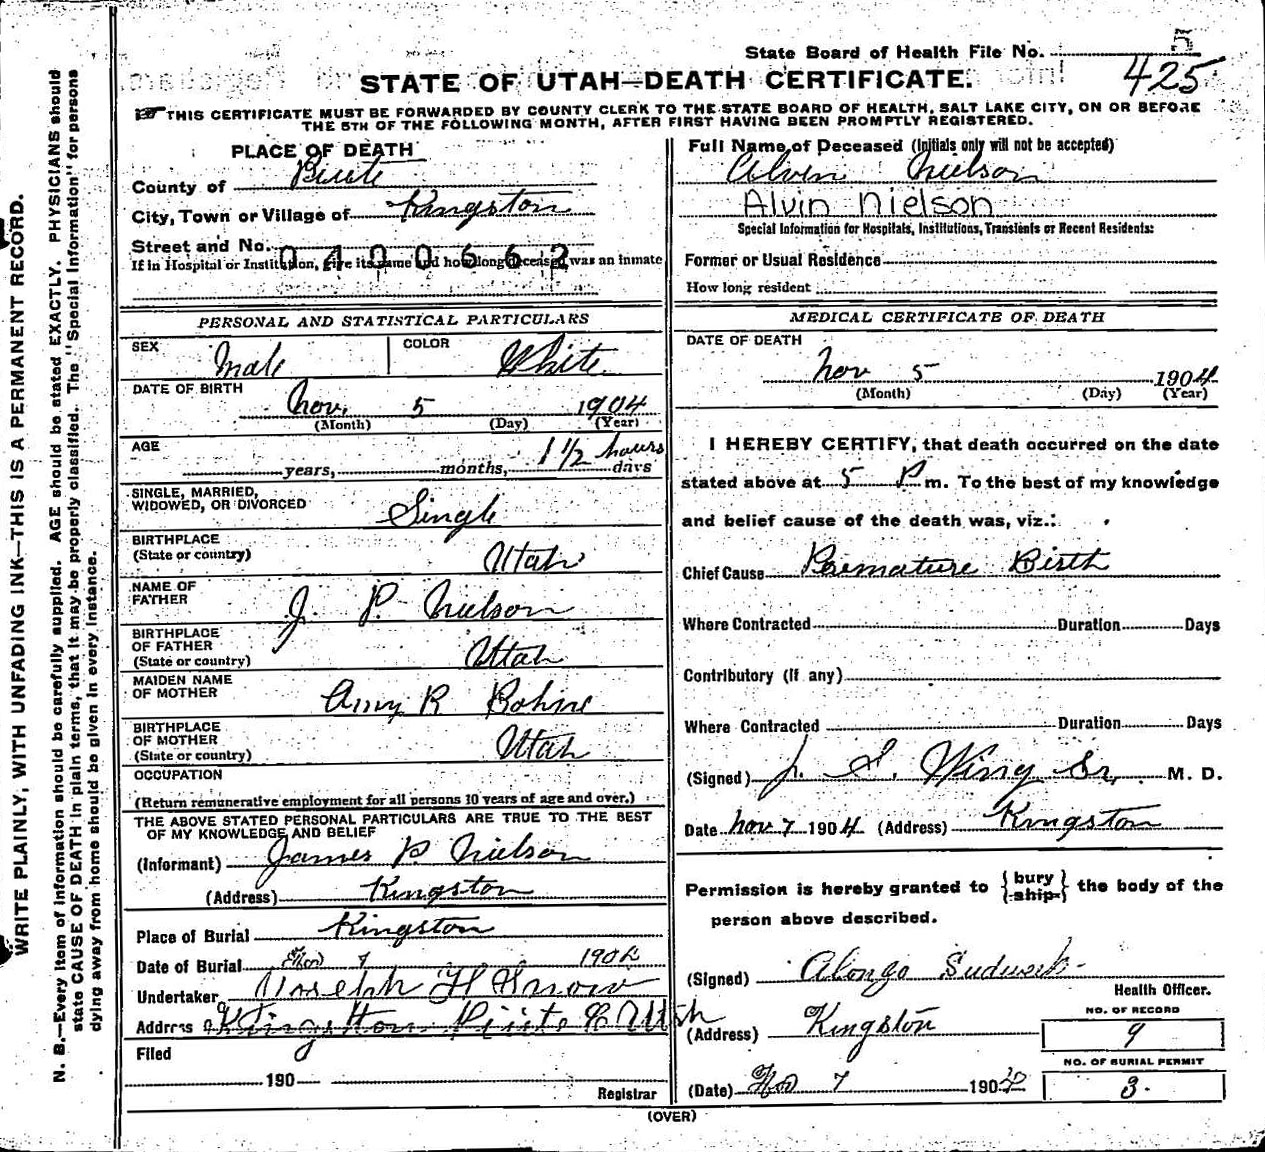 State Board of Health File No. 5
425
STATE OF UTAH—DEATH CERTIFICATE.
THIS CERTIFICATE MUST BE FORWARDED BY COUNTY CLERK TO THE STATE BOARD OF HEALTH, SALT LAKE CITY, ON OR BEFORE
THE 5TH OF THE FOLLOWING MONTH, AFTER FIRST HAVING BEEN PROMPTLY REGISTERED.
WRITE PLAINLY, WITH UNFADING INK—THIS IS A PERMANENT RECORD.
N. B.—Every item of information should be carefully supplied. AGE should be stated EXACTLY. PHYSICIANS should
state CAUSE OF DEATH in plain terms, that it may be properly classified. The "Special Information" for persons
dying away from home should be given in every instance.
PLACE OF DEATH
County of Piute
City, Town or Village of Kingston
Street and No. 0400662
If in Hospital or Institution, give its name and how long deceased was an inmate
PERSONAL AND STATISTICAL PARTICULARS
SEX Male COLOR White
DATE OF BIRTH Nov. 5 1904
(Month) (Day) (Year)
AGE 1 1/2 hours
years, months, days
SINGLE, MARRIED,
WIDOWED, OR DIVORCED Single
BIRTHPLACE
(State or country) Utah
NAME OF
FATHER J. P. Nielson
BIRTHPLACE
OF FATHER
(State or country) Utah
MAIDEN NAME
OF MOTHER Amy R
BIRTHPLACE
OF MOTHER
(State or country) Utah
OCCUPATION
(Return remunerative employment for all persons 10 years of age and over.)
THE ABOVE STATED PERSONAL PARTICULARS ARE TRUE TO THE BEST
OF MY KNOWLEDGE AND BELIEF
(Informant) James P Nielson
(Address) Kingston
Place of Burial Kingston
Date of Burial Nov 7 1904
Undertaker Joseph H Snow
Address Kingston Piute C Utah
Filed
190 Registrar
Full Name of Deceased (Initials only will not be accepted)
Alvin Nielson
Alvin Nielson
Special Information for Hospitals, Institutions, Transients or Recent Residents:
Former or Usual Residence
How long resident
MEDICAL CERTIFICATE OF DEATH
DATE OF DEATH
Nov 5 1904
(Month) (Day) (Year)
I HEREBY CERTIFY, that death occurred on the date
stated above at 5 P m. To the best of my knowledge
and belief cause of the death was, viz.:
Chief Cause Premature Birth
Where Contracted Duration Days
Contributory (if any)
Where Contracted Duration Days
(Signed) J. S. Wing Sr. M. D.
Date Nov 7 1904 (Address) Kingston
Permission is hereby granted to {bury ship} the body of the
person above described.
(Signed) Alonzo Sudweek
Health Officer.
(Address) Kingston
NO. OF RECORD
9
NO. OF BURIAL PERMIT
3.
(Date) Nov 7 1904
(OVER)